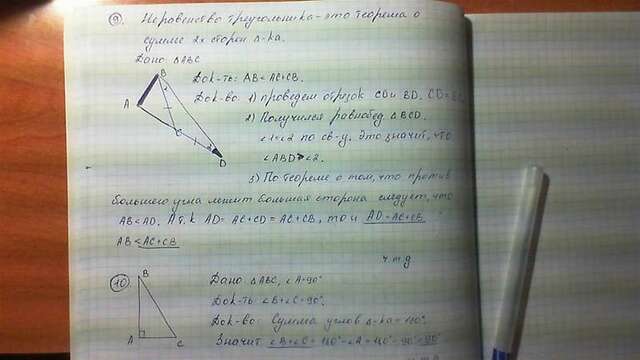 9. Неравенство треугольника - это теорема о
сумме 2х сторон Δ-ка.
Дано ΔABC
Док-ть: AB < AC+CB.
Док-во: 1) Проведем отрезок CD и BD. CD=
2) Получился равнобед ΔBCD.
∠1=∠2 по св-у. Это значит, что
∠ABD>∠2.
3) По теореме о том, что против
большего угла лежит большая сторона следует, что
AB<AD. А т.к AD= AC+CD = AC+CB, то и AD=AC+CB
AB<AC+CB
ч.т.д
B
A
C
D
10. Дано ΔABC, ∠A=90°
Док-ть ∠B+∠C=90°.
Док-во: Сумма углов Δ-ка=180°.
Значит ∠B+∠C = 180°-∠A=180°-90°=90°
B
A
C